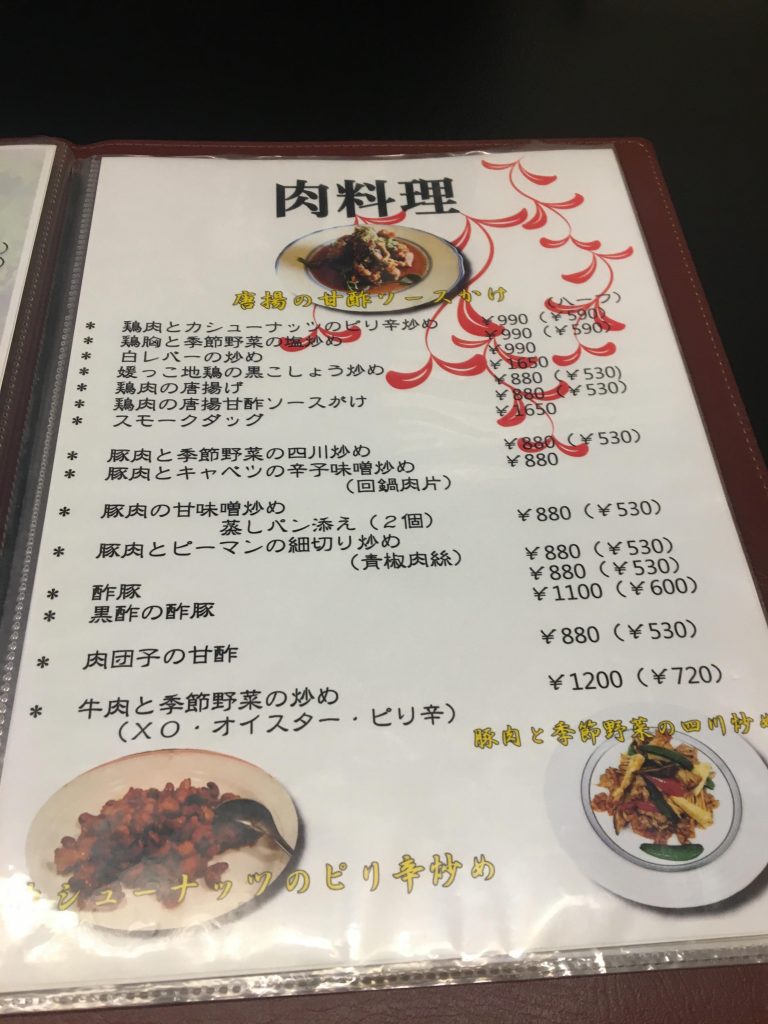 肉料理
唐揚の甘酢ソースかけ
(ハーフ)
* 鶏肉とカシューナッツのピリ辛炒め ￥990(￥590)
* 鶏胸と季節野菜の塩炒め ￥990(￥590)
* 白レバーの炒め ￥990
* 媛っこ地鶏の黒こしょう炒め ￥1650
* 鶏肉の唐揚げ ￥880(￥530)
* 鶏肉の唐揚甘酢ソースがけ ￥880(￥530)
* スモークダッグ ￥1650
* 豚肉と季節野菜の四川炒め ￥880(￥530)
* 豚肉とキャベツの辛子味噌炒め ￥880
(回鍋肉片)
* 豚肉の甘味噌炒め ￥880(￥530)
蒸しパン添え(2個)
* 豚肉とピーマンの細切り炒め ￥880(￥530)
(青椒肉絲)
* 酢豚 ￥880(￥530)
* 黒酢の酢豚 ￥1100(￥600)
* 肉団子の甘酢 ￥880(￥530)
* 牛肉と季節野菜の炒め ￥1200(￥720)
(XO・オイスター・ピリ辛)
豚肉と季節野菜の四川炒め
カシューナッツのピリ辛炒め